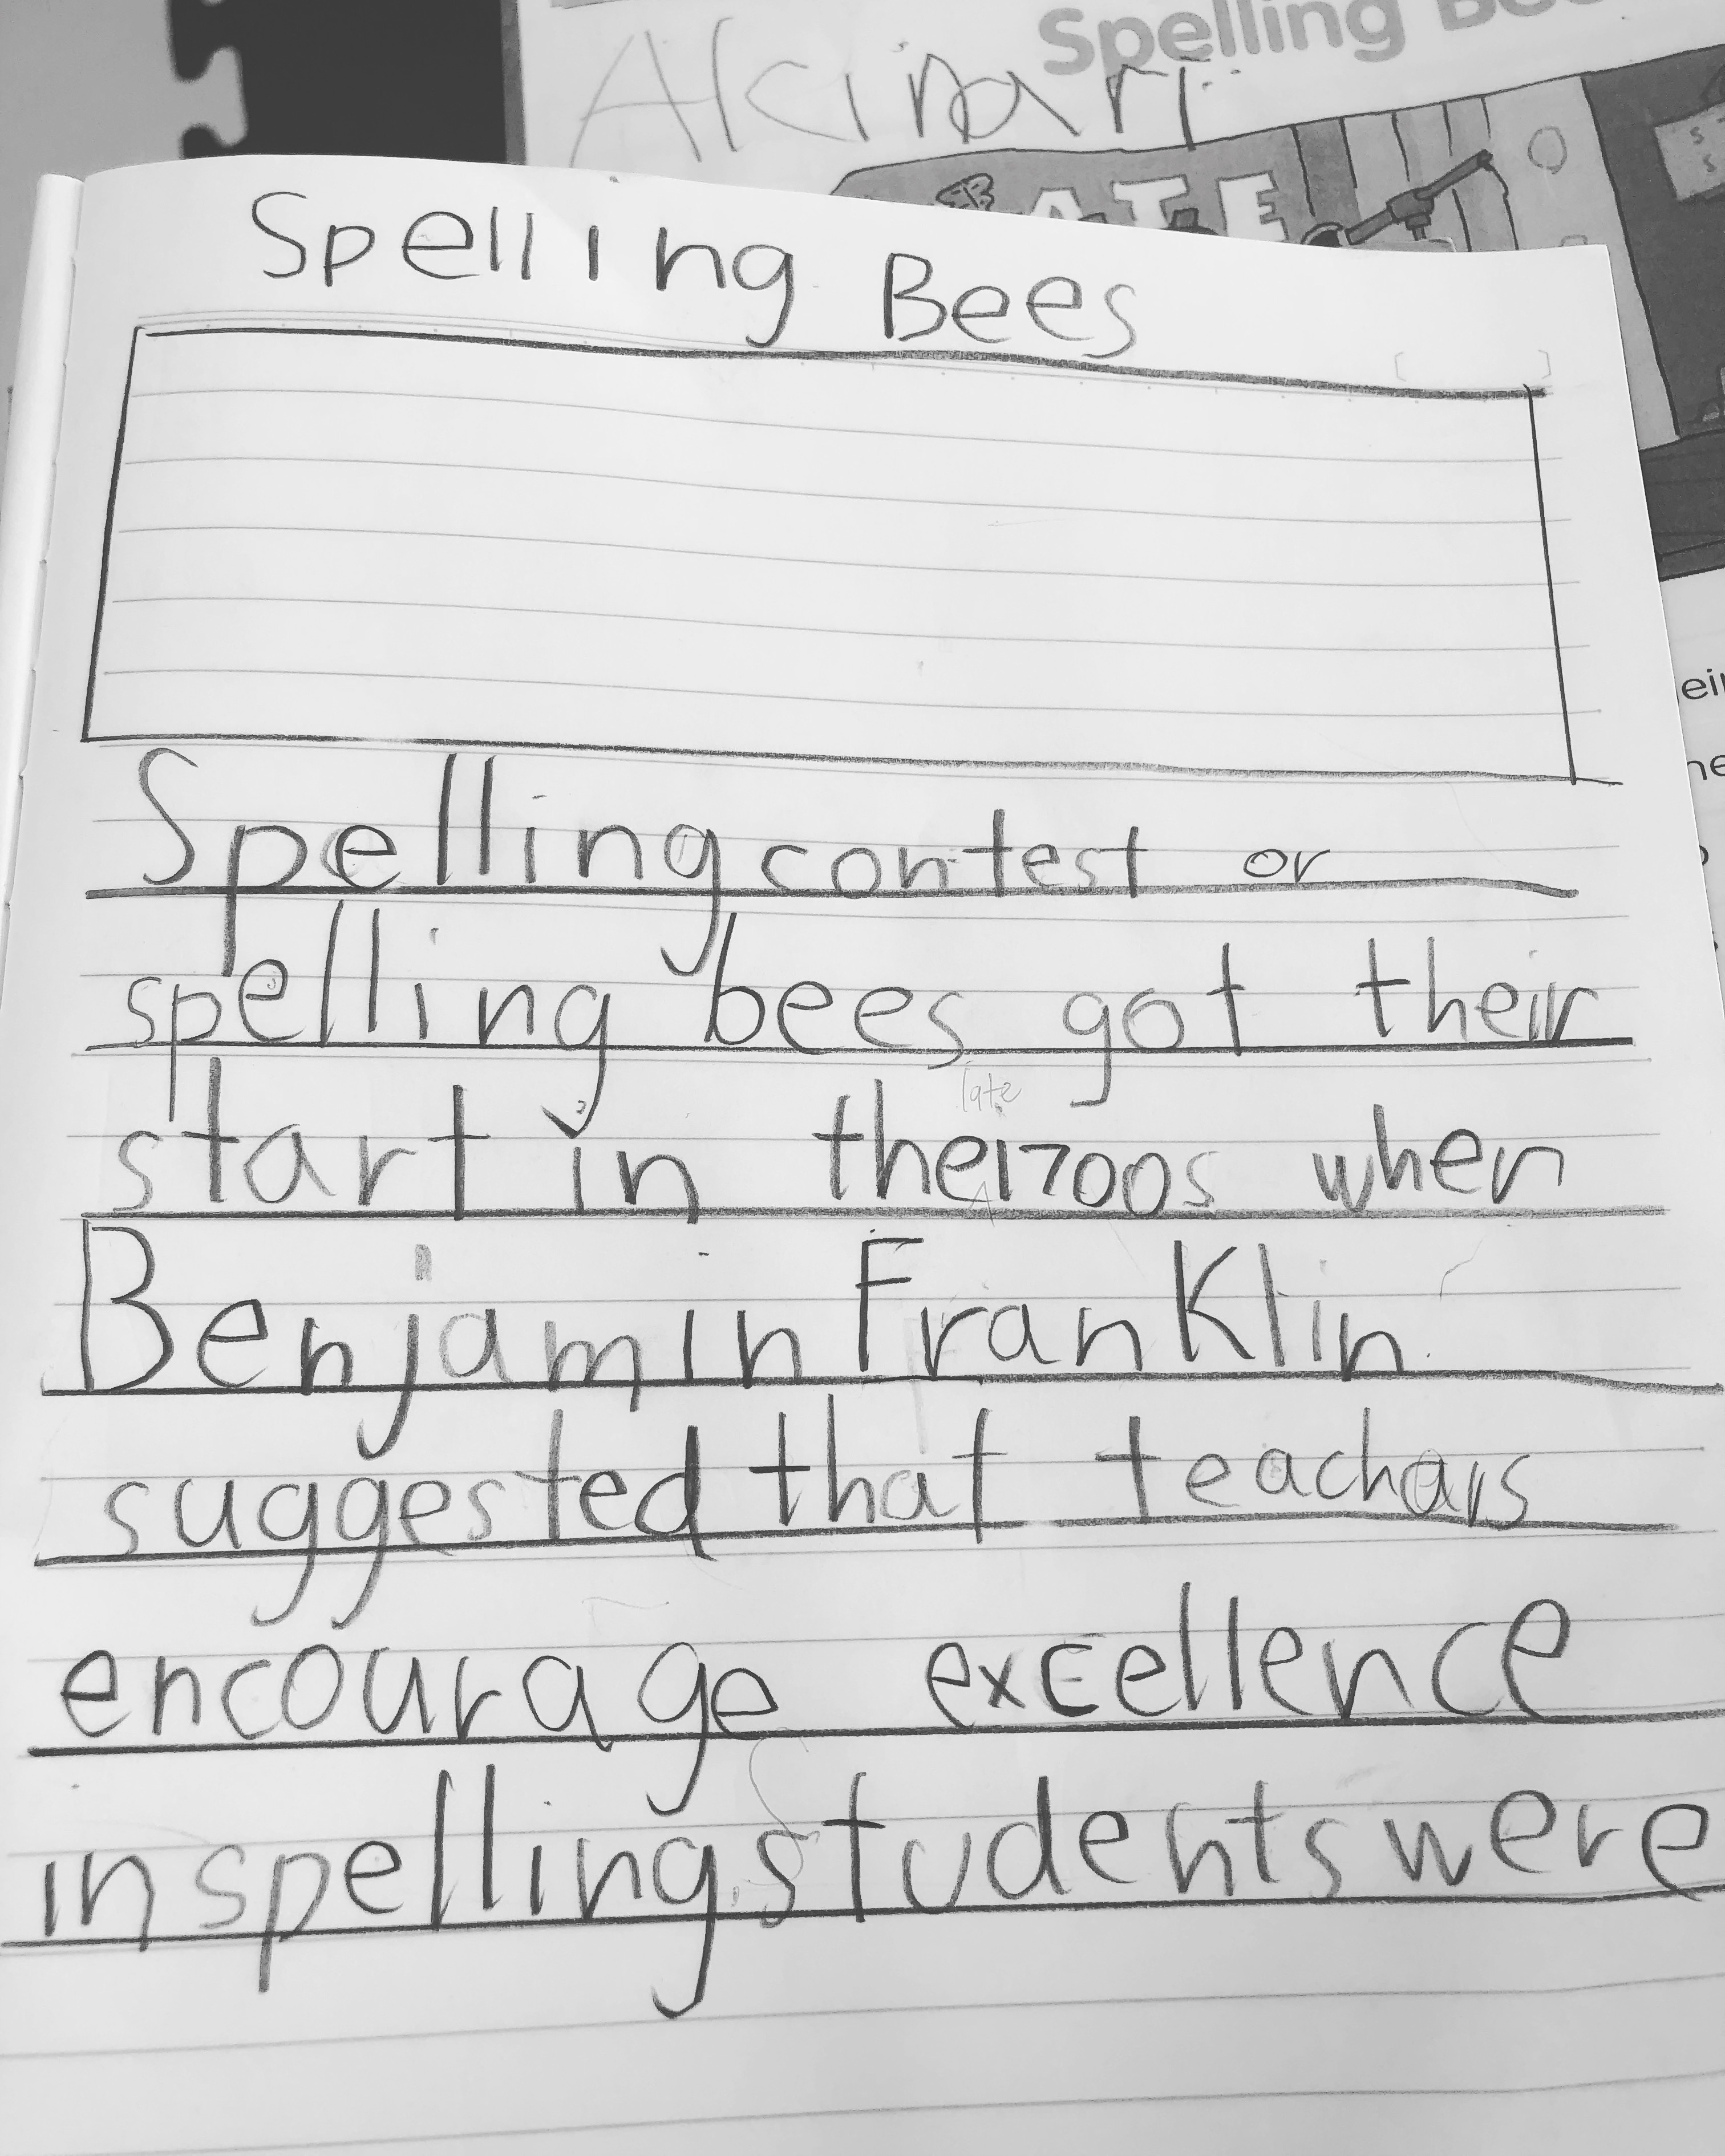 Spelling
Akinari
ATE
Spelling Bees
Spelling contest or
spelling bees got their
late
start in the 1700s when
Benjamin Franklin
suggested that teachars
encourage excellence
in spelling students were